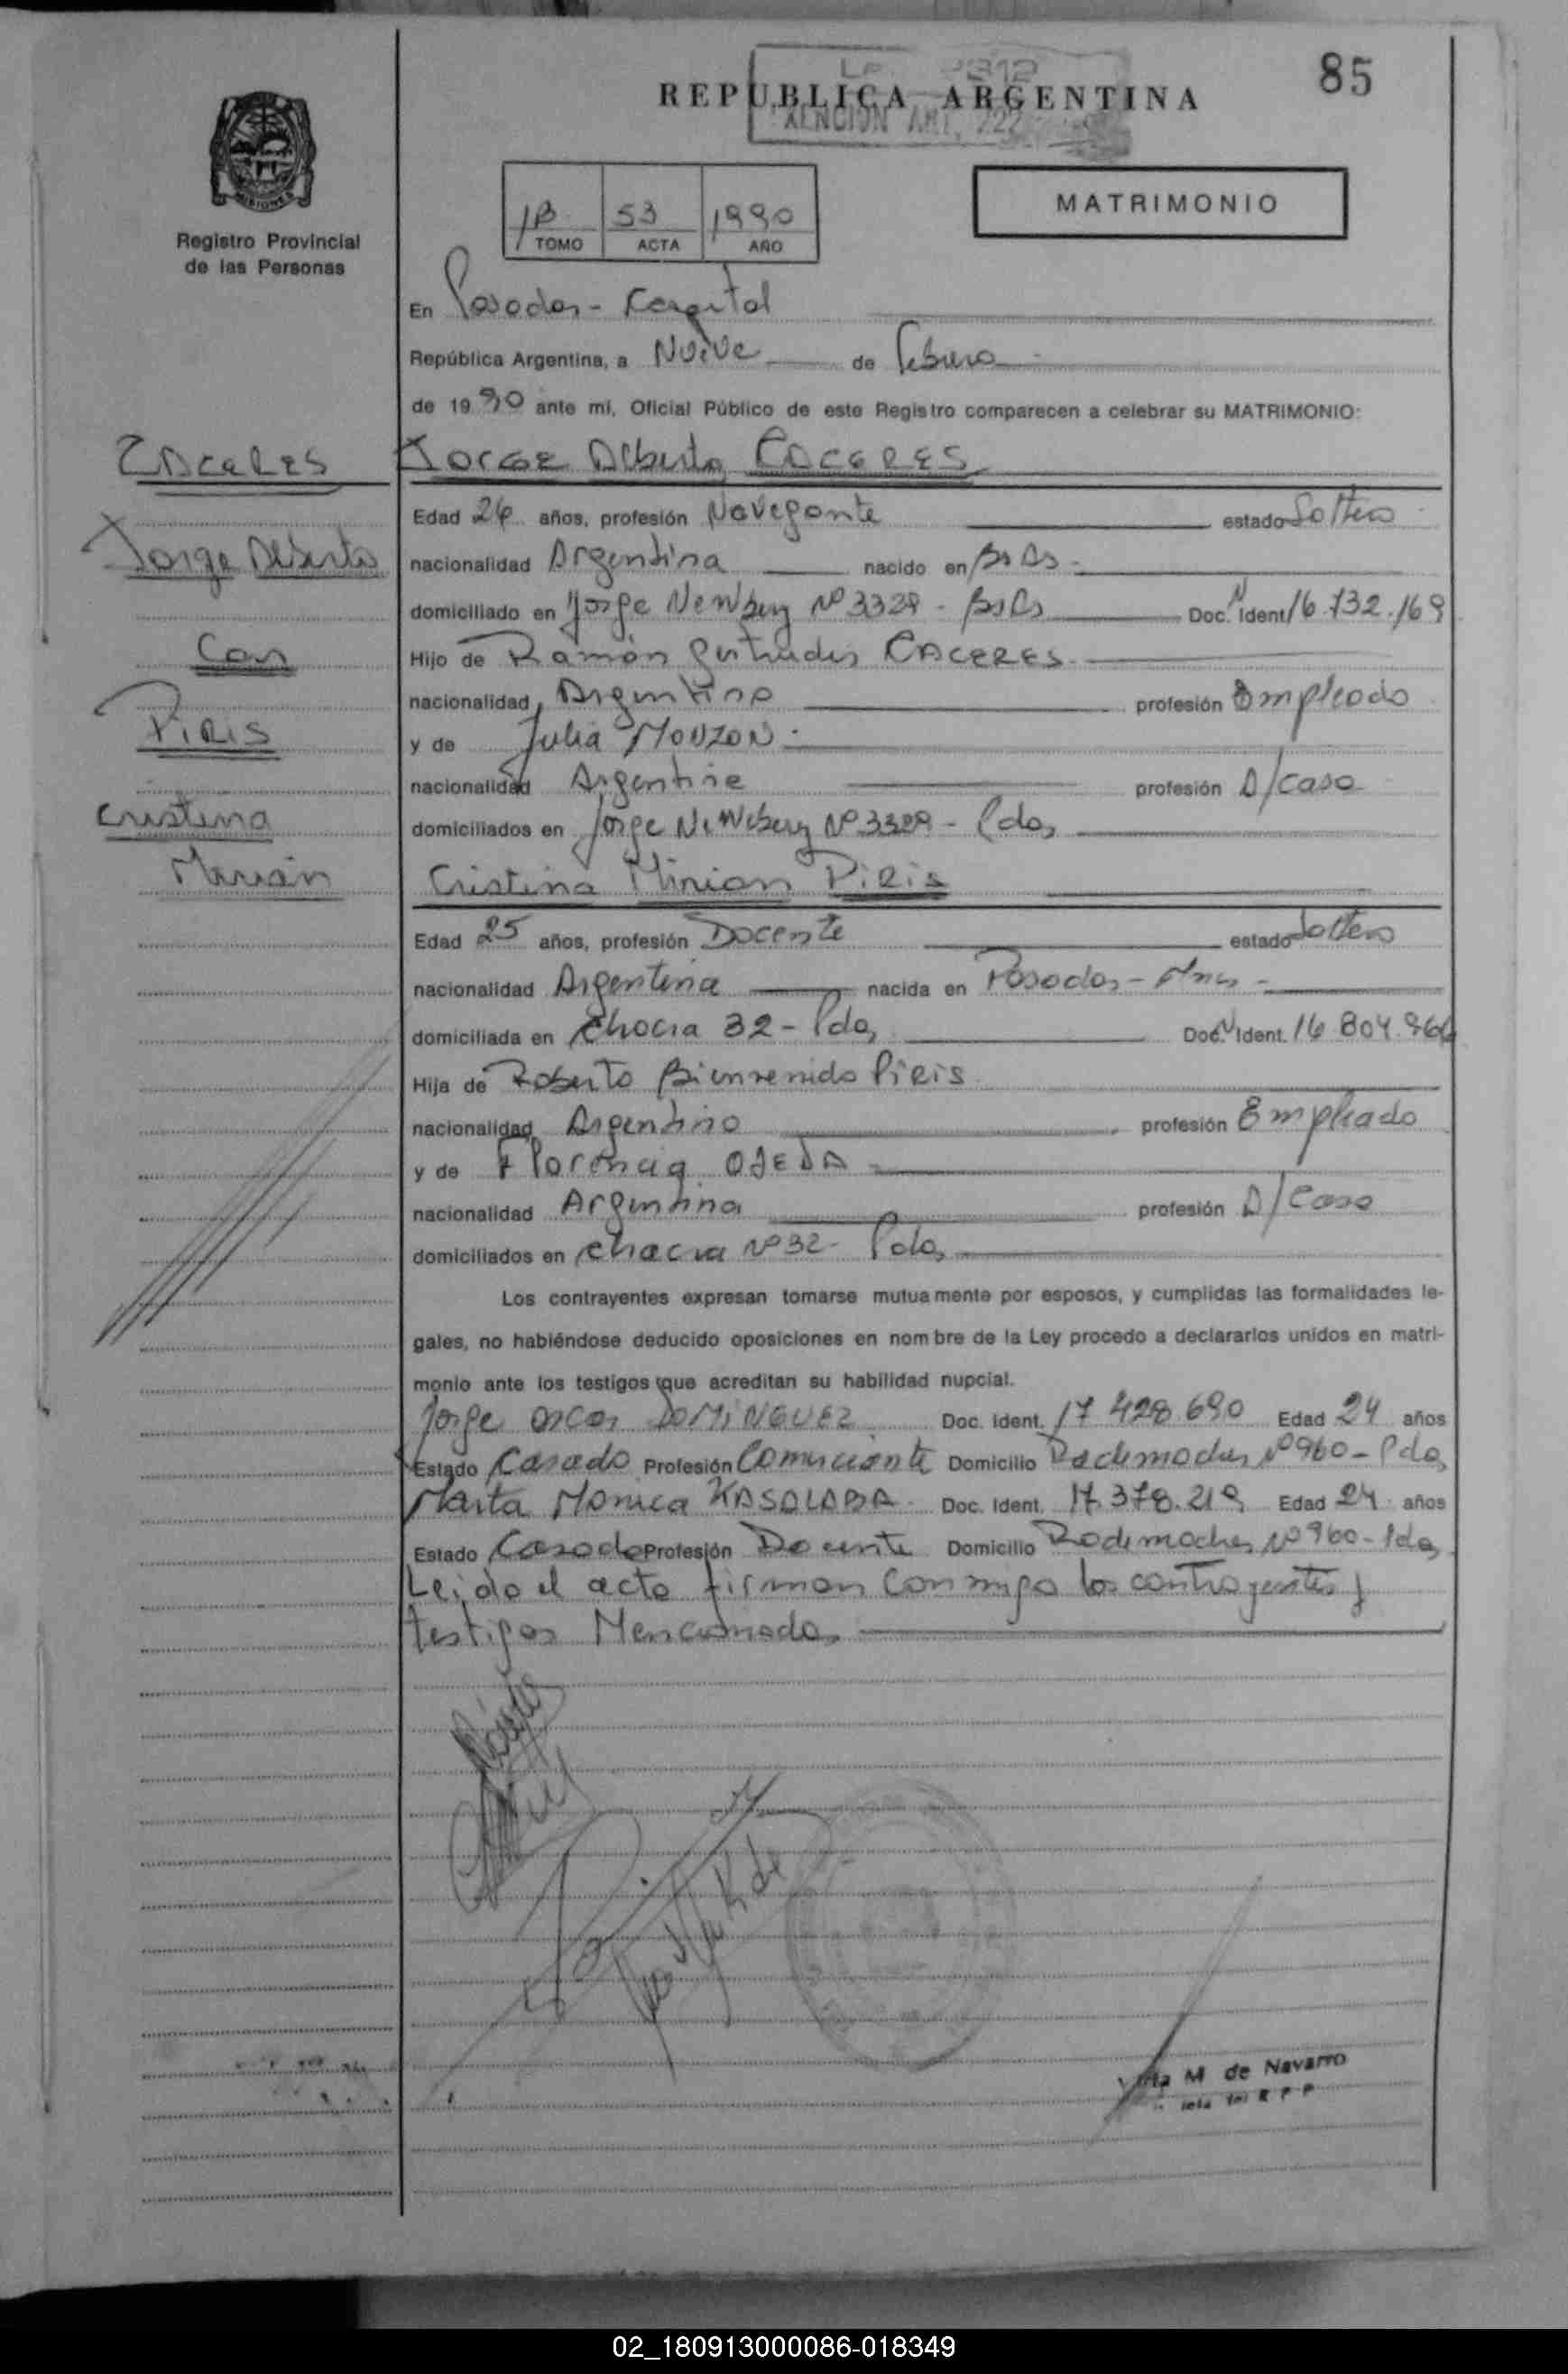 85
REPUBLICA ARGENTINA
MISIONES
Registro Provincial
de las Personas
1B 53 1990
TOMO ACTA AÑO
MATRIMONIO
En Posadas - Capital
República Argentina, a Nueve de Febrero
de 1990 ante mí, Oficial Público de este Registro comparecen a celebrar su MATRIMONIO:
CACERES
Jorge Alberto
Con
PIRIS
Cristina
Mirian
JORGE Alberto CACERES
Edad 26 años, profesión Navegante estado Soltero
nacionalidad Argentina nacido en Bs As
domiciliado en Jorge Newbery Nº 3329 - Bs As Doc. N Ident 16.732.169
Hijo de Ramón Gertrudis CACERES
nacionalidad Argentino profesión Empleado
y de Julia MONZON
nacionalidad Argentina profesión A/casa
domiciliados en Jorge Newbery Nº 3329 - Pdas
Cristina Mirian PIRIS
Edad 25 años, profesión Docente estado Soltera
nacionalidad Argentina nacida en Posadas - Mnes
domiciliada en Chacra 32 - Pdas Doc. N Ident. 16.804.966
Hija de Roberto Bienvenido PIRIS
nacionalidad Argentino profesión Empleado
y de Florencia OJEDA
nacionalidad Argentina profesión A/Casa
domiciliados en chacra Nº 32 - Pdas
Los contrayentes expresan tomarse mutuamente por esposos, y cumplidas las formalidades le-
gales, no habiéndose deducido oposiciones en nombre de la Ley procedo a declararlos unidos en matri-
monio ante los testigos que acreditan su habilidad nupcial.
Jorge Oscar DOMINGUEZ Doc. Ident. 17.428.690 Edad 24 años
Estado Casado Profesión Comerciante Domicilio Nº 960 - Pdas
Marta Monica KASALABA Doc. Ident. 17.378.219 Edad 24 años
Estado Casada Profesión Docente Domicilio Nº 960 - Pdas
Leido el acta firman conmigo los contrayentes y
testigos Mencionados
M de Navarro
02_180913000086-018349